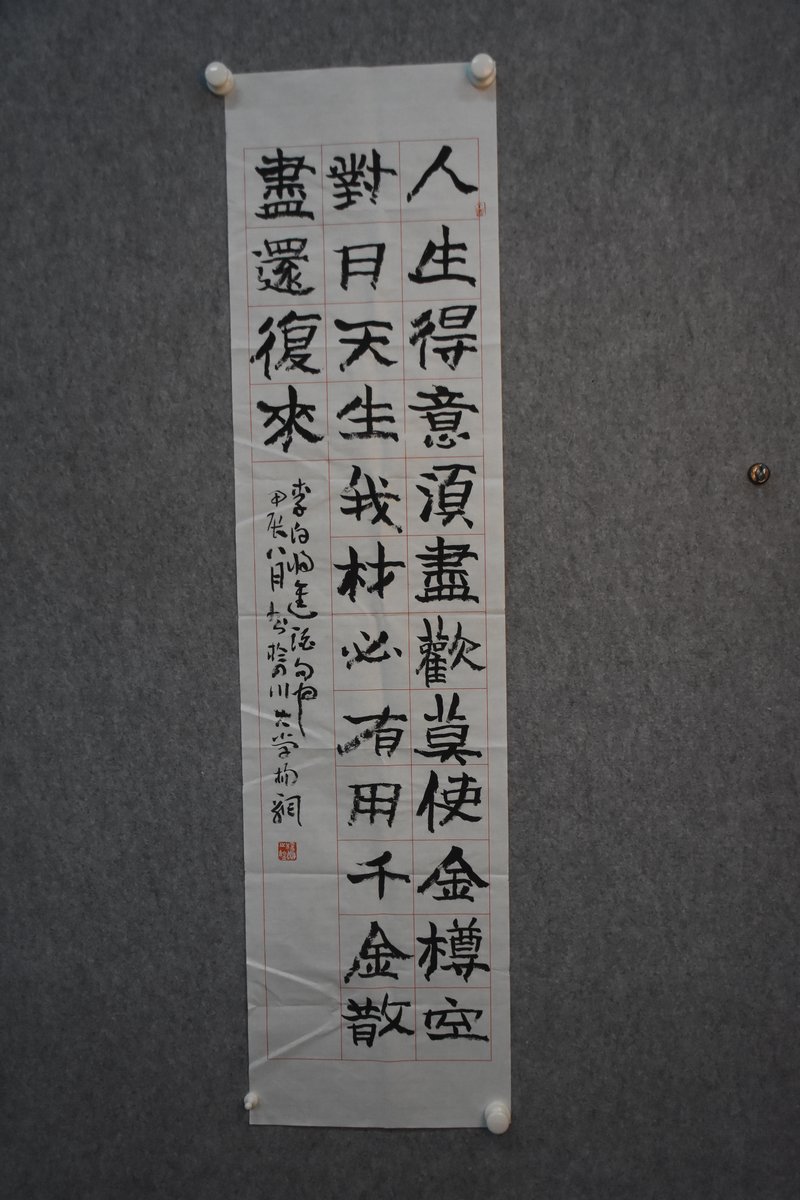 人生得意須盡歡莫使金樽空
對日天生我材必有用千金散
盡還復來
李白将進
甲辰八月书於四川大学